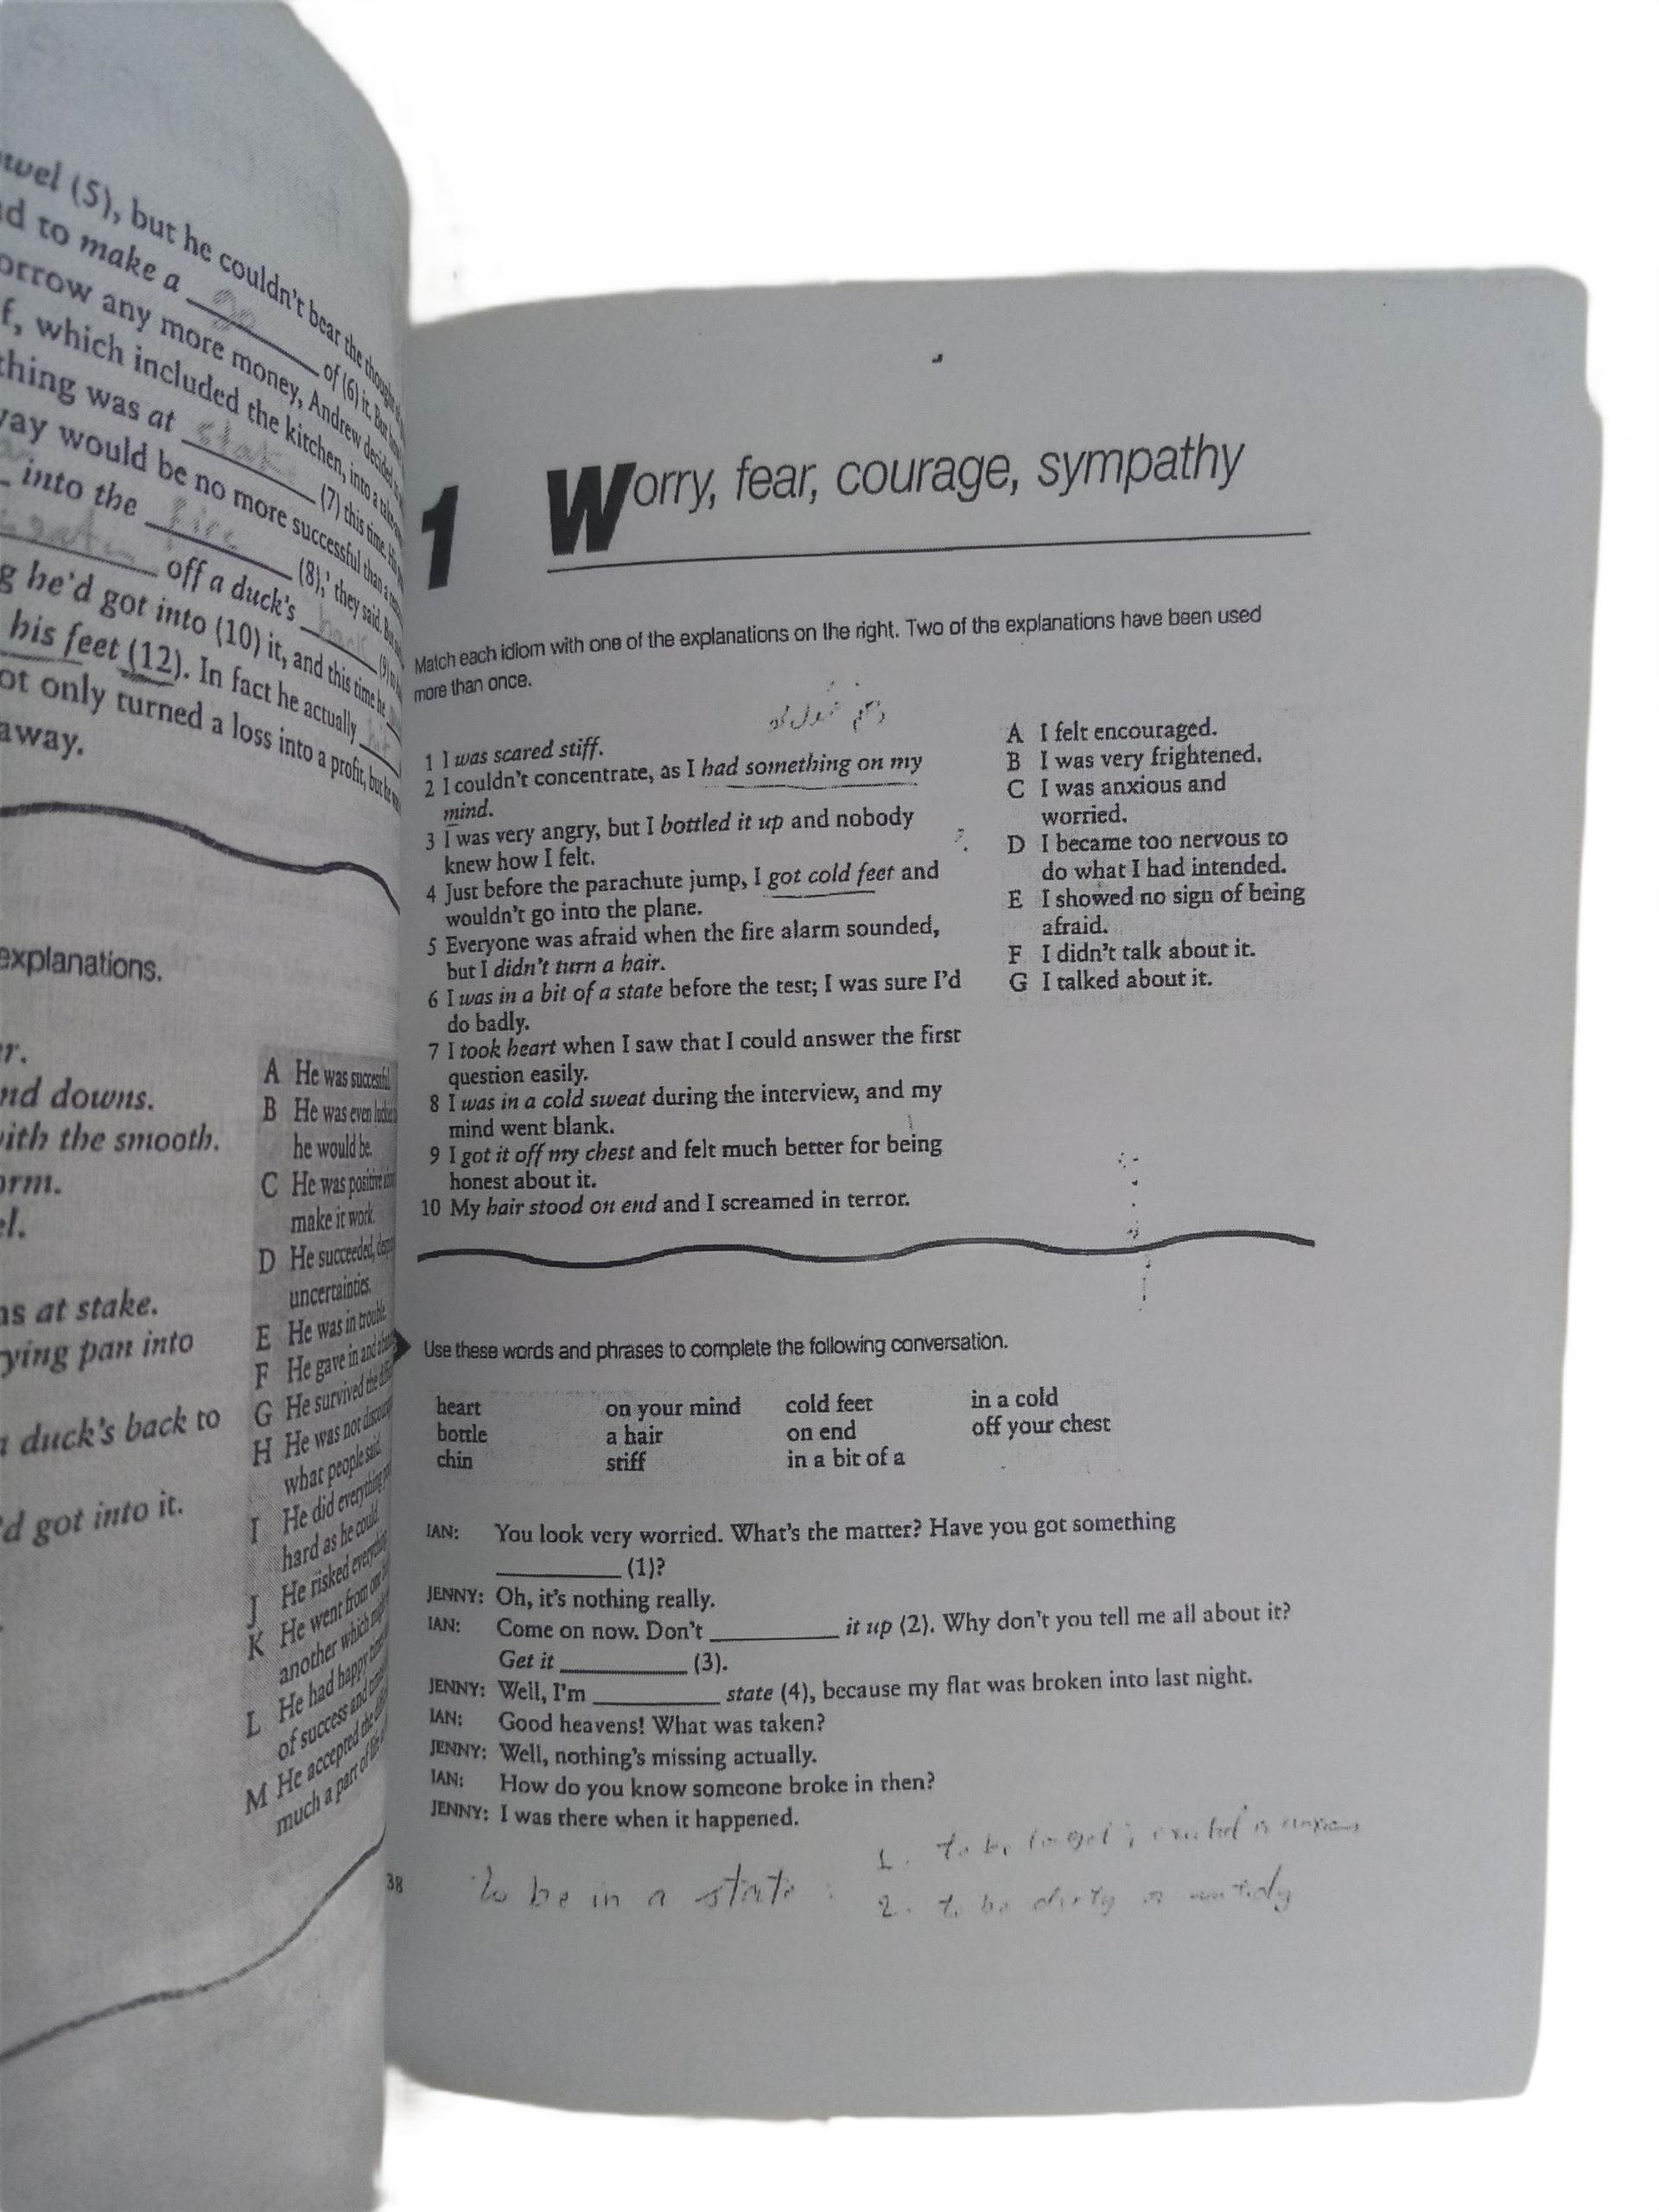 wel (5), but he couldn't bear the
d to make a go of (6) it. But
orrow any more money, Andrew decided
f, which included the kitchen, into a
thing was at stake (7) this time.
way would be no more successful than a
into the fire (8),' they said. But
off a duck's back (9)
g he'd got into (10) it, and this time he
his feet (12). In fact he actually
ot only turned a loss into a profit, but he
away.
explanations.
r.
nd downs.
ith the smooth.
orm.
el.
as at stake.
ying pan into
a duck's back to
'd got into it.
A He was successful.
B He was even
he would be.
C He was positive
make it work.
D He succeeded,
uncertainties.
E He was in trouble.
F He gave in and
G He survived the
H He was not
what people said.
I He did everything
hard as he could.
J He risked everything
K He went from one
another which
L He had happy times
of success and
M He accepted the
much a part of
1 Worry, fear, courage, sympathy
Match each idiom with one of the explanations on the right. Two of the explanations have been used
more than once.
1 I was scared stiff.
2 I couldn't concentrate, as I had something on my
mind.
3 I was very angry, but I bottled it up and nobody
knew how I felt.
4 Just before the parachute jump, I got cold feet and
wouldn't go into the plane.
5 Everyone was afraid when the fire alarm sounded,
but I didn't turn a hair.
6 I was in a bit of a state before the test; I was sure I'd
do badly.
7 I took heart when I saw that I could answer the first
question easily.
8 I was in a cold sweat during the interview, and my
mind went blank.
9 I got it off my chest and felt much better for being
honest about it.
10 My hair stood on end and I screamed in terror.
A I felt encouraged.
B I was very frightened.
C I was anxious and
worried.
D I became too nervous to
do what I had intended.
E I showed no sign of being
afraid.
F I didn't talk about it.
G I talked about it.
Use these words and phrases to complete the following conversation.
heart on your mind cold feet in a cold
bottle a hair on end off your chest
chin stiff in a bit of a
IAN: You look very worried. What's the matter? Have you got something
__________ (1)?
JENNY: Oh, it's nothing really.
IAN: Come on now. Don't __________ it up (2). Why don't you tell me all about it?
Get it __________ (3).
JENNY: Well, I'm __________ state (4), because my flat was broken into last night.
IAN: Good heavens! What was taken?
JENNY: Well, nothing's missing actually.
IAN: How do you know someone broke in then?
JENNY: I was there when it happened.
1. to be
to be in a state :
2. to be dirty or untidy
38